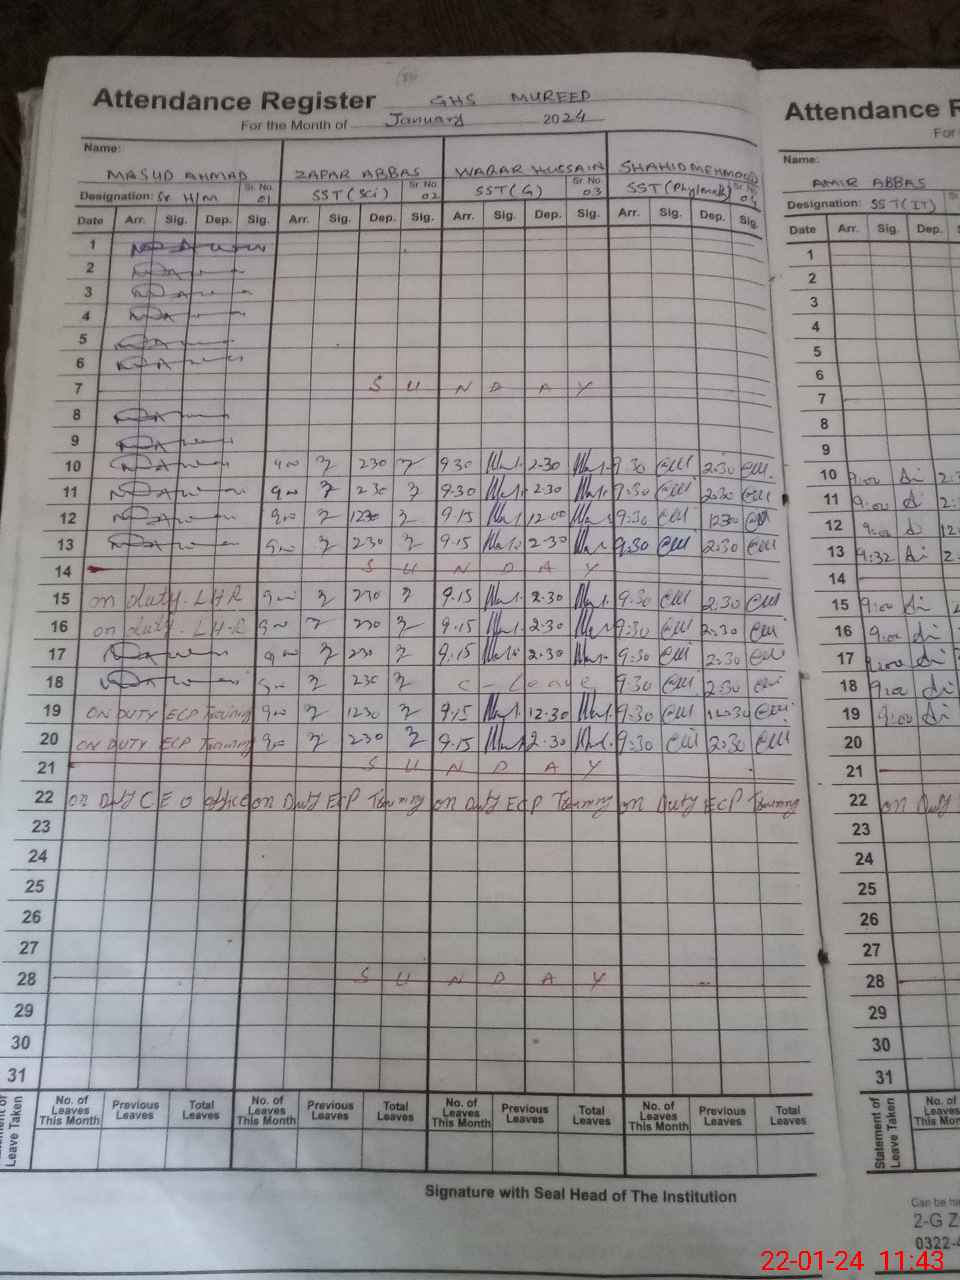 Attendance Register GHS MUREED
For the Month of January 2024
Name: MASUD AHMAD ZAFAR ABBAS WAQAR HUSSAIN SHAHID MEHMOOD
Designation: Sr H/M Sr. No. 01 SST (Sci) Sr. No. 02 SST (G) Sr. No. 03 SST (Phy/Math) Sr. No. 04
Date Arr. Sig. Dep. Sig. Arr. Sig. Dep. Sig. Arr. Sig. Dep. Sig. Arr. Sig. Dep. Sig.
1
2
3
4
5
6
7 S U N D A Y
8
9
10 900 230 9.30 2.30 9.30 2.30
11 900 230 9.30 2.30 9.30 2.30
12 900 1230 9.15 12.00 9.30 1230
13 900 230 9.15 2.30 9.30 2.30
14 S U N D A Y
15 on duty. LHR 900 230 9.15 2.30 9.30 2.30
16 on duty. LHR 900 230 9.15 2.30 9.30 2.30
17 900 230 9.15 2.30 9.30 2.30
18 900 230 C-Leave 9.30 2.30
19 ON DUTY ECP Training 900 1230 9.15 12.30 9.30 12.30
20 ON DUTY ECP Training 900 230 9.15 2.30 9.30 2.30
21 S U N D A Y
22 on Duty C E O office on Duty ECP Training on Duty ECP Training on Duty ECP Training
23
24
25
26
27
28 S U N D A Y
29
30
31
Leave Taken No. of Leaves This Month Previous Leaves Total Leaves No. of Leaves This Month Previous Leaves Total Leaves No. of Leaves This Month Previous Leaves Total Leaves No. of Leaves This Month Previous Leaves Total Leaves
Signature with Seal Head of The Institution
Attendance
For
Name: AMIR ABBAS
Designation: SST (IT)
Date Arr. Sig. Dep.
1
2
3
4
5
6
7
8
9
10 9:00
11 9:00
12 9:00
13 9:32
14
15 9:00
16 9:00
17 9:00
18 9:00
19 9:00
20
21
22 on Duty
23
24
25
26
27
28
29
30
31
Statement of Leave Taken No. of Leaves This
Can be
2-G
0322-
22-01-24 11:43